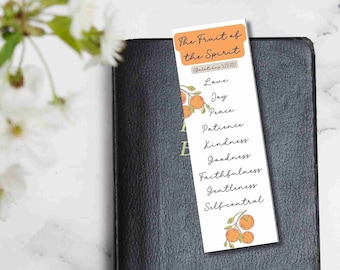 The Fruit of
the Spirit
Love
Joy
Peace
Patience
Kindness
Goodness
Faithfulness
Gentleness
Self-control